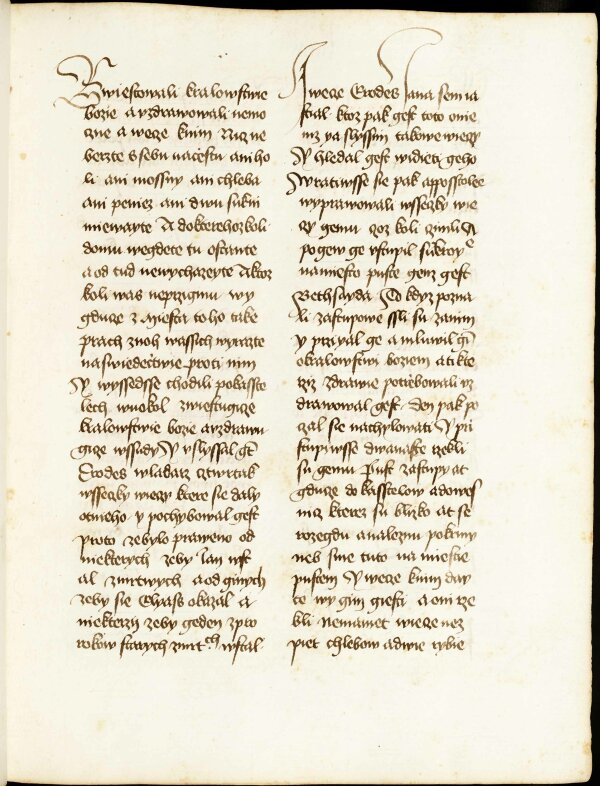 Zwiestowali kralowstwie
bozie a vzdrawowali nemo
czne a wecze k nim Nicz ne
berzte s sebu na cestu ani ho
li ani mossny ani chleba
ani peniez ani dwu sukni
miewayte A do kterehoz koli
domu wegdete tu ostante
a od tud newychazeyte A ktoz
koli was neprzigmu wy
gducze z miesta toho take
prach z noh wassich wyrazte
na swiedecztwie proti nim
A wyssedsse chodili po kasste
lech w uokol zwiestugicze
kralowstwie bozie a vzdrawu
gicze wssudy A vslyssal gt
Erodes wladarz cztwrtak
wsseczky wieczy ktere sie daly
ot nieho y pochybowal gest
proto ze bylo praweno od
niekterych zeby Jan wst
al z mrtwych a od ginych
zeby sie Elyass okazal a
niekterzy zeby geden z pro
rokow starych z mrtch wstal
A wecze Erodes Jana sem ia
stial ktoz pak gest toto o nie
mz ya slyssim takowe wieczy
A hledal gest widieti geho
A wratiwsse sie pak apposstolee
wyprawowali wsseczky wie
czy gemu czoz koli czinili A
pogew ge vstupil sukromye
na miesto puste genz gest
Bethsayda To kdyz pozna
li zastupowe ssli su za nim
y przyyal ge a mluwil gim
o kralowstwi boziem a ti kte
rziz zdrawie potrzebowali vz
drawowal gest Den pak po
czal sie nachylowati A pri
stupiwsse dwanaste rzekli
su gemu Pust zastupy at
gducze do kasstelow a do wes
nicz kterez su blizko at se
rozegdu a naleznu pokrmy
neb sme tuto na miestie
pustem A wecze k nim day
te wy gim giesti a oni rze
kli Nemamet wiecze nez
piet chlebow a dwie rybie